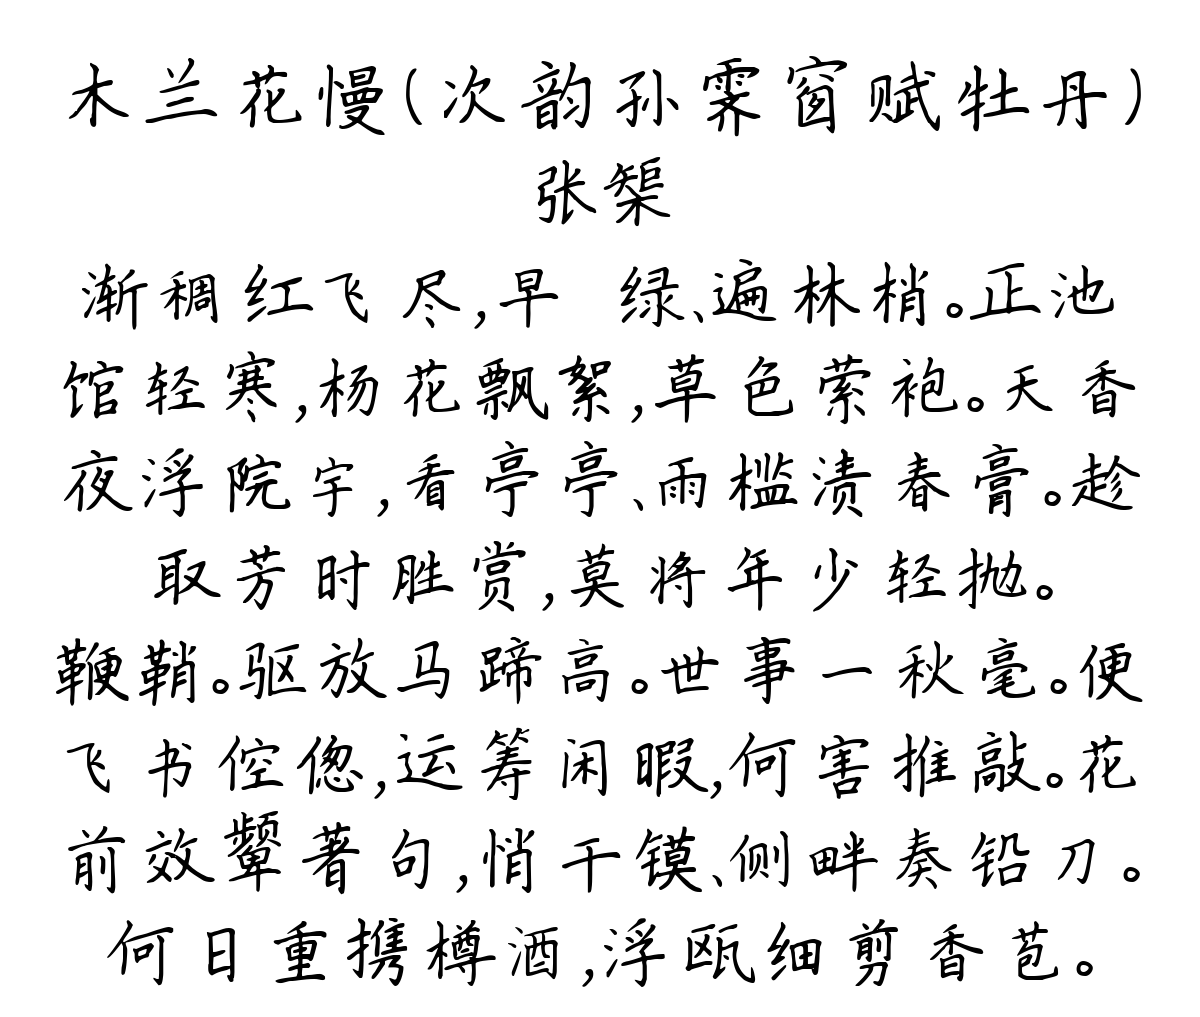 木兰花慢(次韵孙霁窗赋牡丹)
张榘
渐稠红飞尽,早 绿、遍林梢。正池
馆轻寒,杨花飘絮,草色萦袍。天香
夜浮院宇,看亭亭、雨槛渍春膏。趁
取芳时胜赏,莫将年少轻抛。
鞭鞘。驱放马蹄高。世事一秋毫。便
飞书倥偬,运筹闲暇,何害推敲。花
前效颦著句,悄干镆、侧畔奏铅刀。
何日重携樽酒,浮瓯细剪香苞。